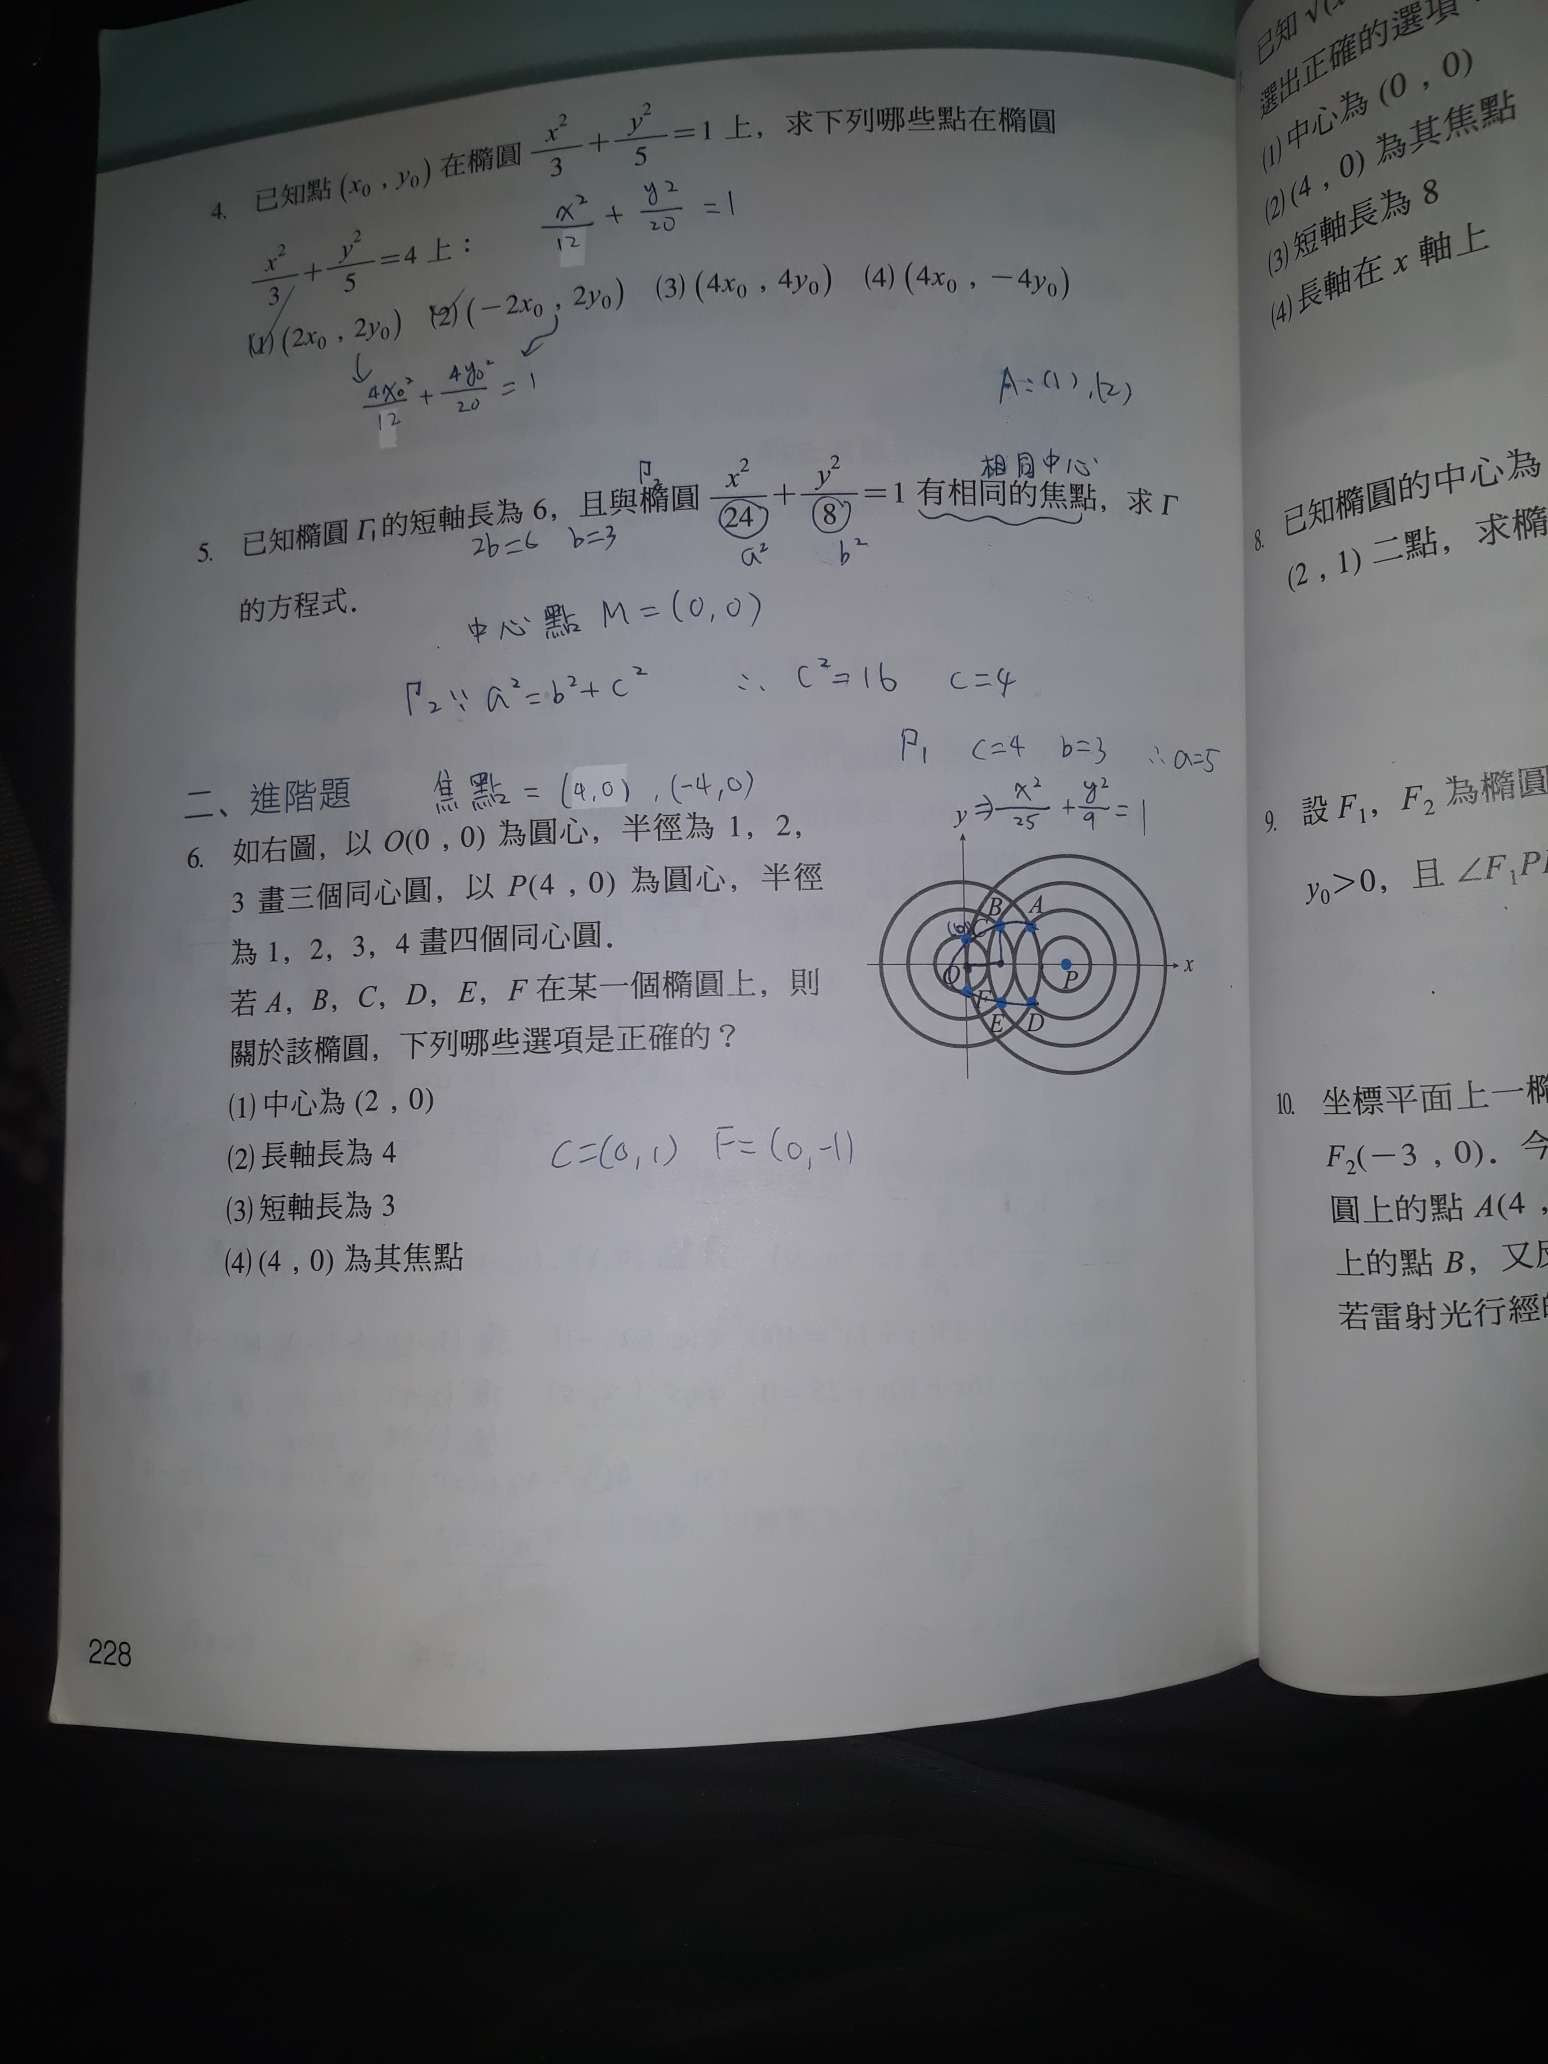 4. 已知點 (x₀ , y₀) 在橢圓 x²/3 + y²/5 = 1 上，求下列哪些點在橢圓
x²/3 + y²/5 = 4 上：
x²/12 + y²/20 = 1
(1) (2x₀ , 2y₀) (2) (−2x₀ , 2y₀) (3) (4x₀ , 4y₀) (4) (4x₀ , −4y₀)
4x₀²/12 + 4y₀²/20 = 1
A：(1) , (2)
Γ₂ 相同中心
5. 已知橢圓 Γ₁ 的短軸長為 6，且與橢圓 x²/24 + y²/8 = 1 有相同的焦點，求 Γ
2b=6 b=3 a² b²
的方程式．
中心點 M = (0,0)
Γ₂ ∵ a² = b² + c² ∴ c² = 16 c = 4
Γ₁ c=4 b=3 ∴ a=5
焦點 = (4,0) , (-4,0)
⇒ x²/25 + y²/9 = 1
二、進階題
6. 如右圖，以 O(0 , 0) 為圓心，半徑為 1，2，
3 畫三個同心圓，以 P(4 , 0) 為圓心，半徑
為 1，2，3，4 畫四個同心圓．
若 A，B，C，D，E，F 在某一個橢圓上，則
關於該橢圓，下列哪些選項是正確的？
(1) 中心為 (2 , 0)
(2) 長軸長為 4
(3) 短軸長為 3
(4) (4 , 0) 為其焦點
C=(0,1) F=(0,-1)
y
B A
C
O P x
F
E D
228
已知 √(x
選出正確的選項
(1) 中心為 (0 , 0)
(2) (4 , 0) 為其焦點
(3) 短軸長為 8
(4) 長軸在 x 軸上
8. 已知橢圓的中心為
(2 , 1) 二點，求橢
9. 設 F₁，F₂ 為橢圓
y₀>0，且 ∠F₁P
10. 坐標平面上一橢
F₂(−3 , 0)．今
圓上的點 A(4 ,
上的點 B，又反
若雷射光行經的